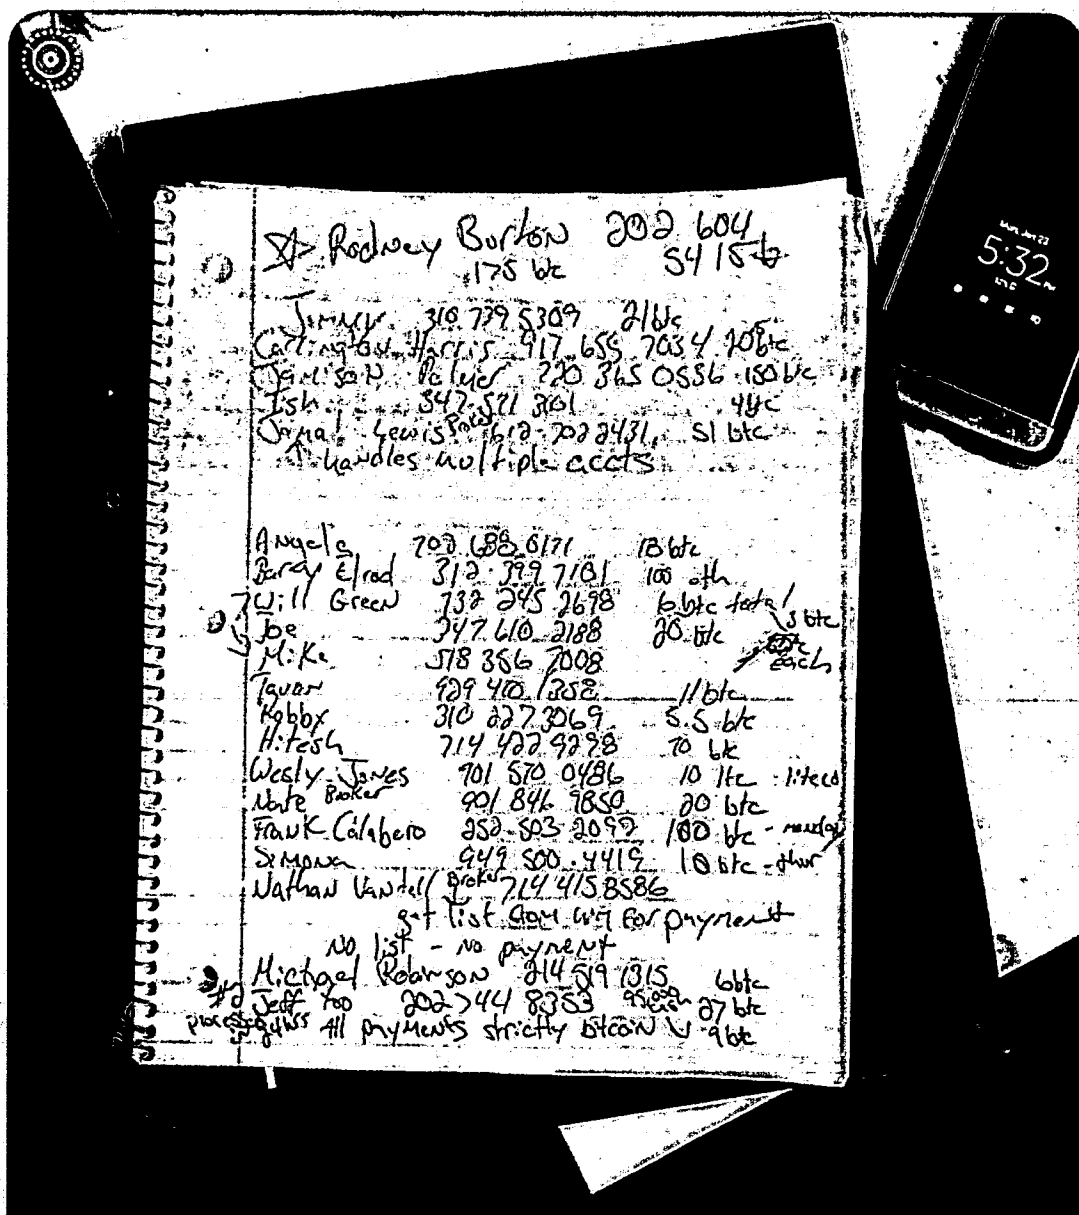 Rodney Burton 202 604
175 btc 5415
Jimmy 310 739 5309 21 btc
Harris 917 655 7034 20 btc
Jamison Palmer 720 365 0556 150 btc
Ish 347 571 3101 4 btc
Jamal Lewis 612 702 2431 51 btc
↑ handles multiple accts
Angela 702 688 0171 18 btc
Barry Elrod 312 399 7181 100 eth
Will Green 732 245 2698 6 btc total
3 btc
Joe 347 610 2188 20 btc
each
Mike 518 356 7008
929 1358 11 btc
Robby 310 227 3069 5.5 btc
Hitesh 714 422 9298 70 btc
Wesly Jones 901 570 0486 10 ltc
Nate Broker 901 846 9850 20 btc
Frank Calabero 252 503 2092 100 btc - monday
Simona 949 500 4419 10 btc - thur
Nathan Broker 714 415 8586
get list from for payment
No list - no payment
Michael Robinson 214 519 1315 6 btc
#2 Jeff 202 744 8353 27 btc
All payments strictly bitcoin 9 btc
Mon, Jan 22
5:32 PM
NYC